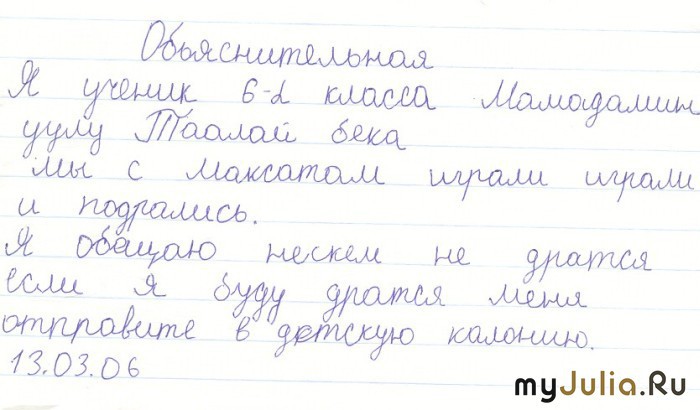 Обьяснительная
Я ученик 6-д класса Мамадамин
уулу Таалай бека
мы с Максатам играли играли
и подрались.
Я обещаю нескем не дратся
если я буду дратся меня
отправите в детскую калонию.
13.03.06
myJulia.Ru